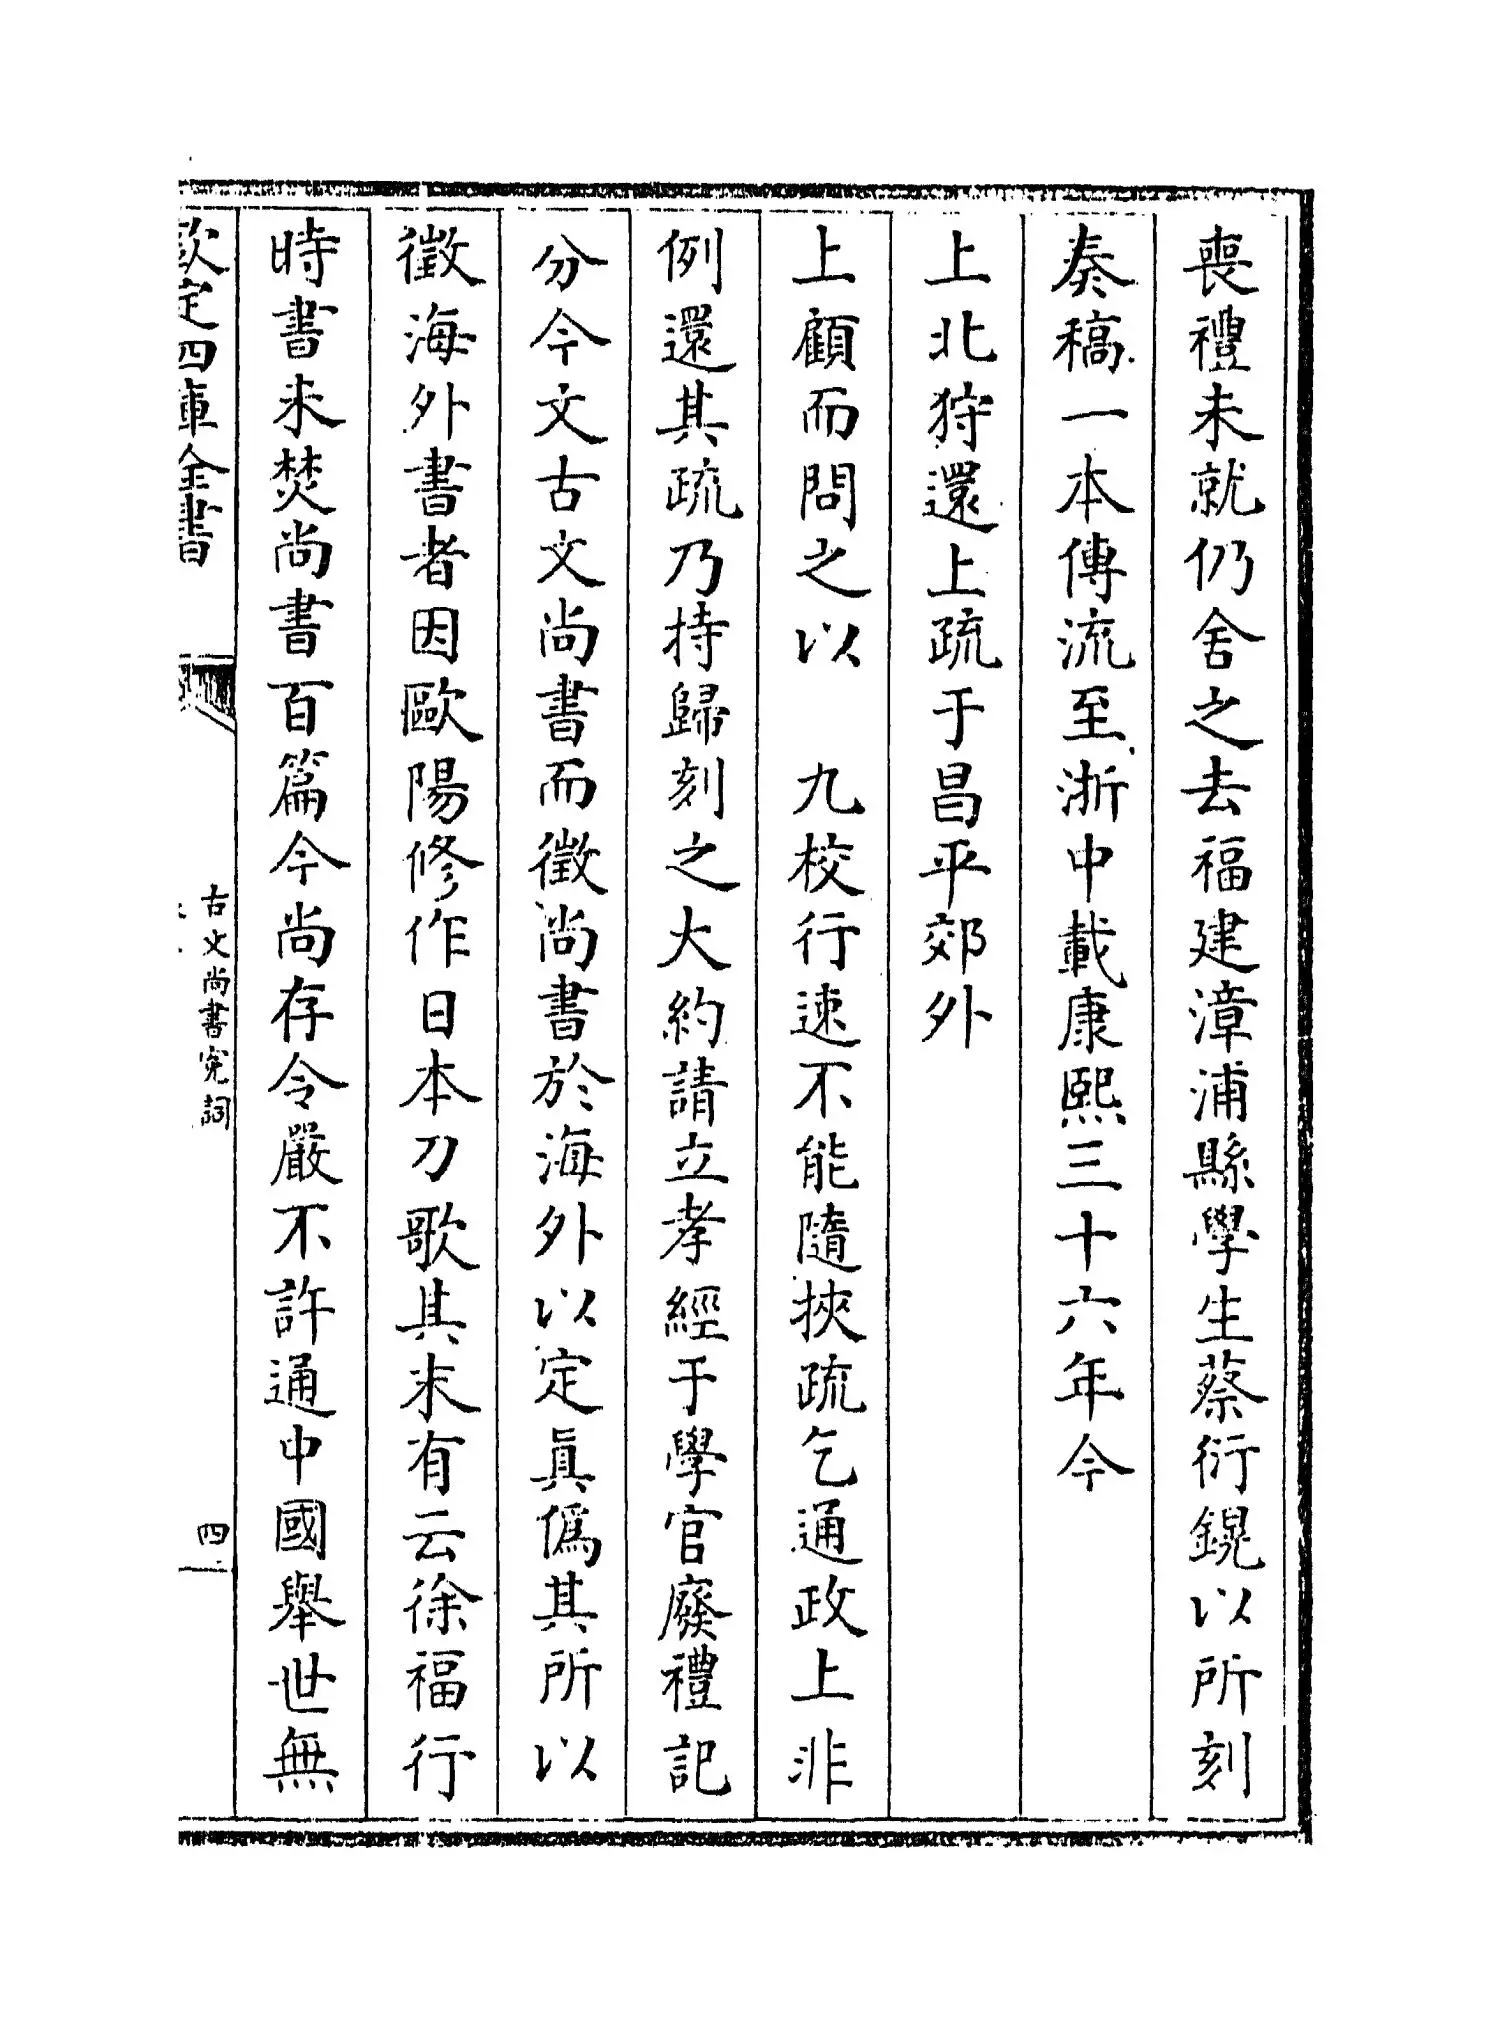 喪禮未就仍舍之去福建漳浦縣學生蔡衍鎤以所刻
奏稿一本傳流至浙中載康熙三十六年今
上北狩還上疏于昌平郊外
上顧而問之以　九校行速不能隨挾疏乞通政上非
例還其疏乃持歸刻之大約請立孝經于學官廢禮記
分今文古文尚書而徵尚書於海外以定真僞其所以
徵海外書者因歐陽修作日本刀歌其末有云徐福行
時書未焚尚書百篇今尚存令嚴不許通中國舉世無
欽定四庫全書
古文尚書寃詞
四